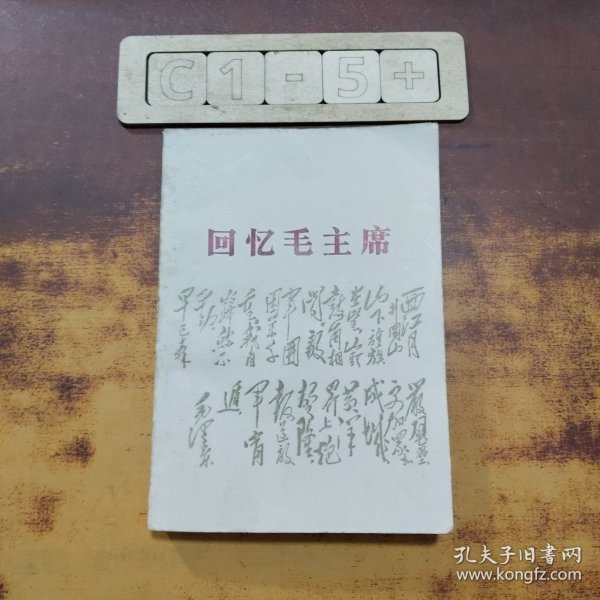 C1-5+
回忆毛主席
西江月
井岡山
山下旌旗
在望山头
鼓角相
闻敌
軍圍
困万千
重我自
巋然不
动
早已森
嚴壁壘
更加眾志
成城
黄洋
界上炮
声隆
报道敌
軍宵
遁
毛泽东
孔夫子旧书网
www.kongfz.com